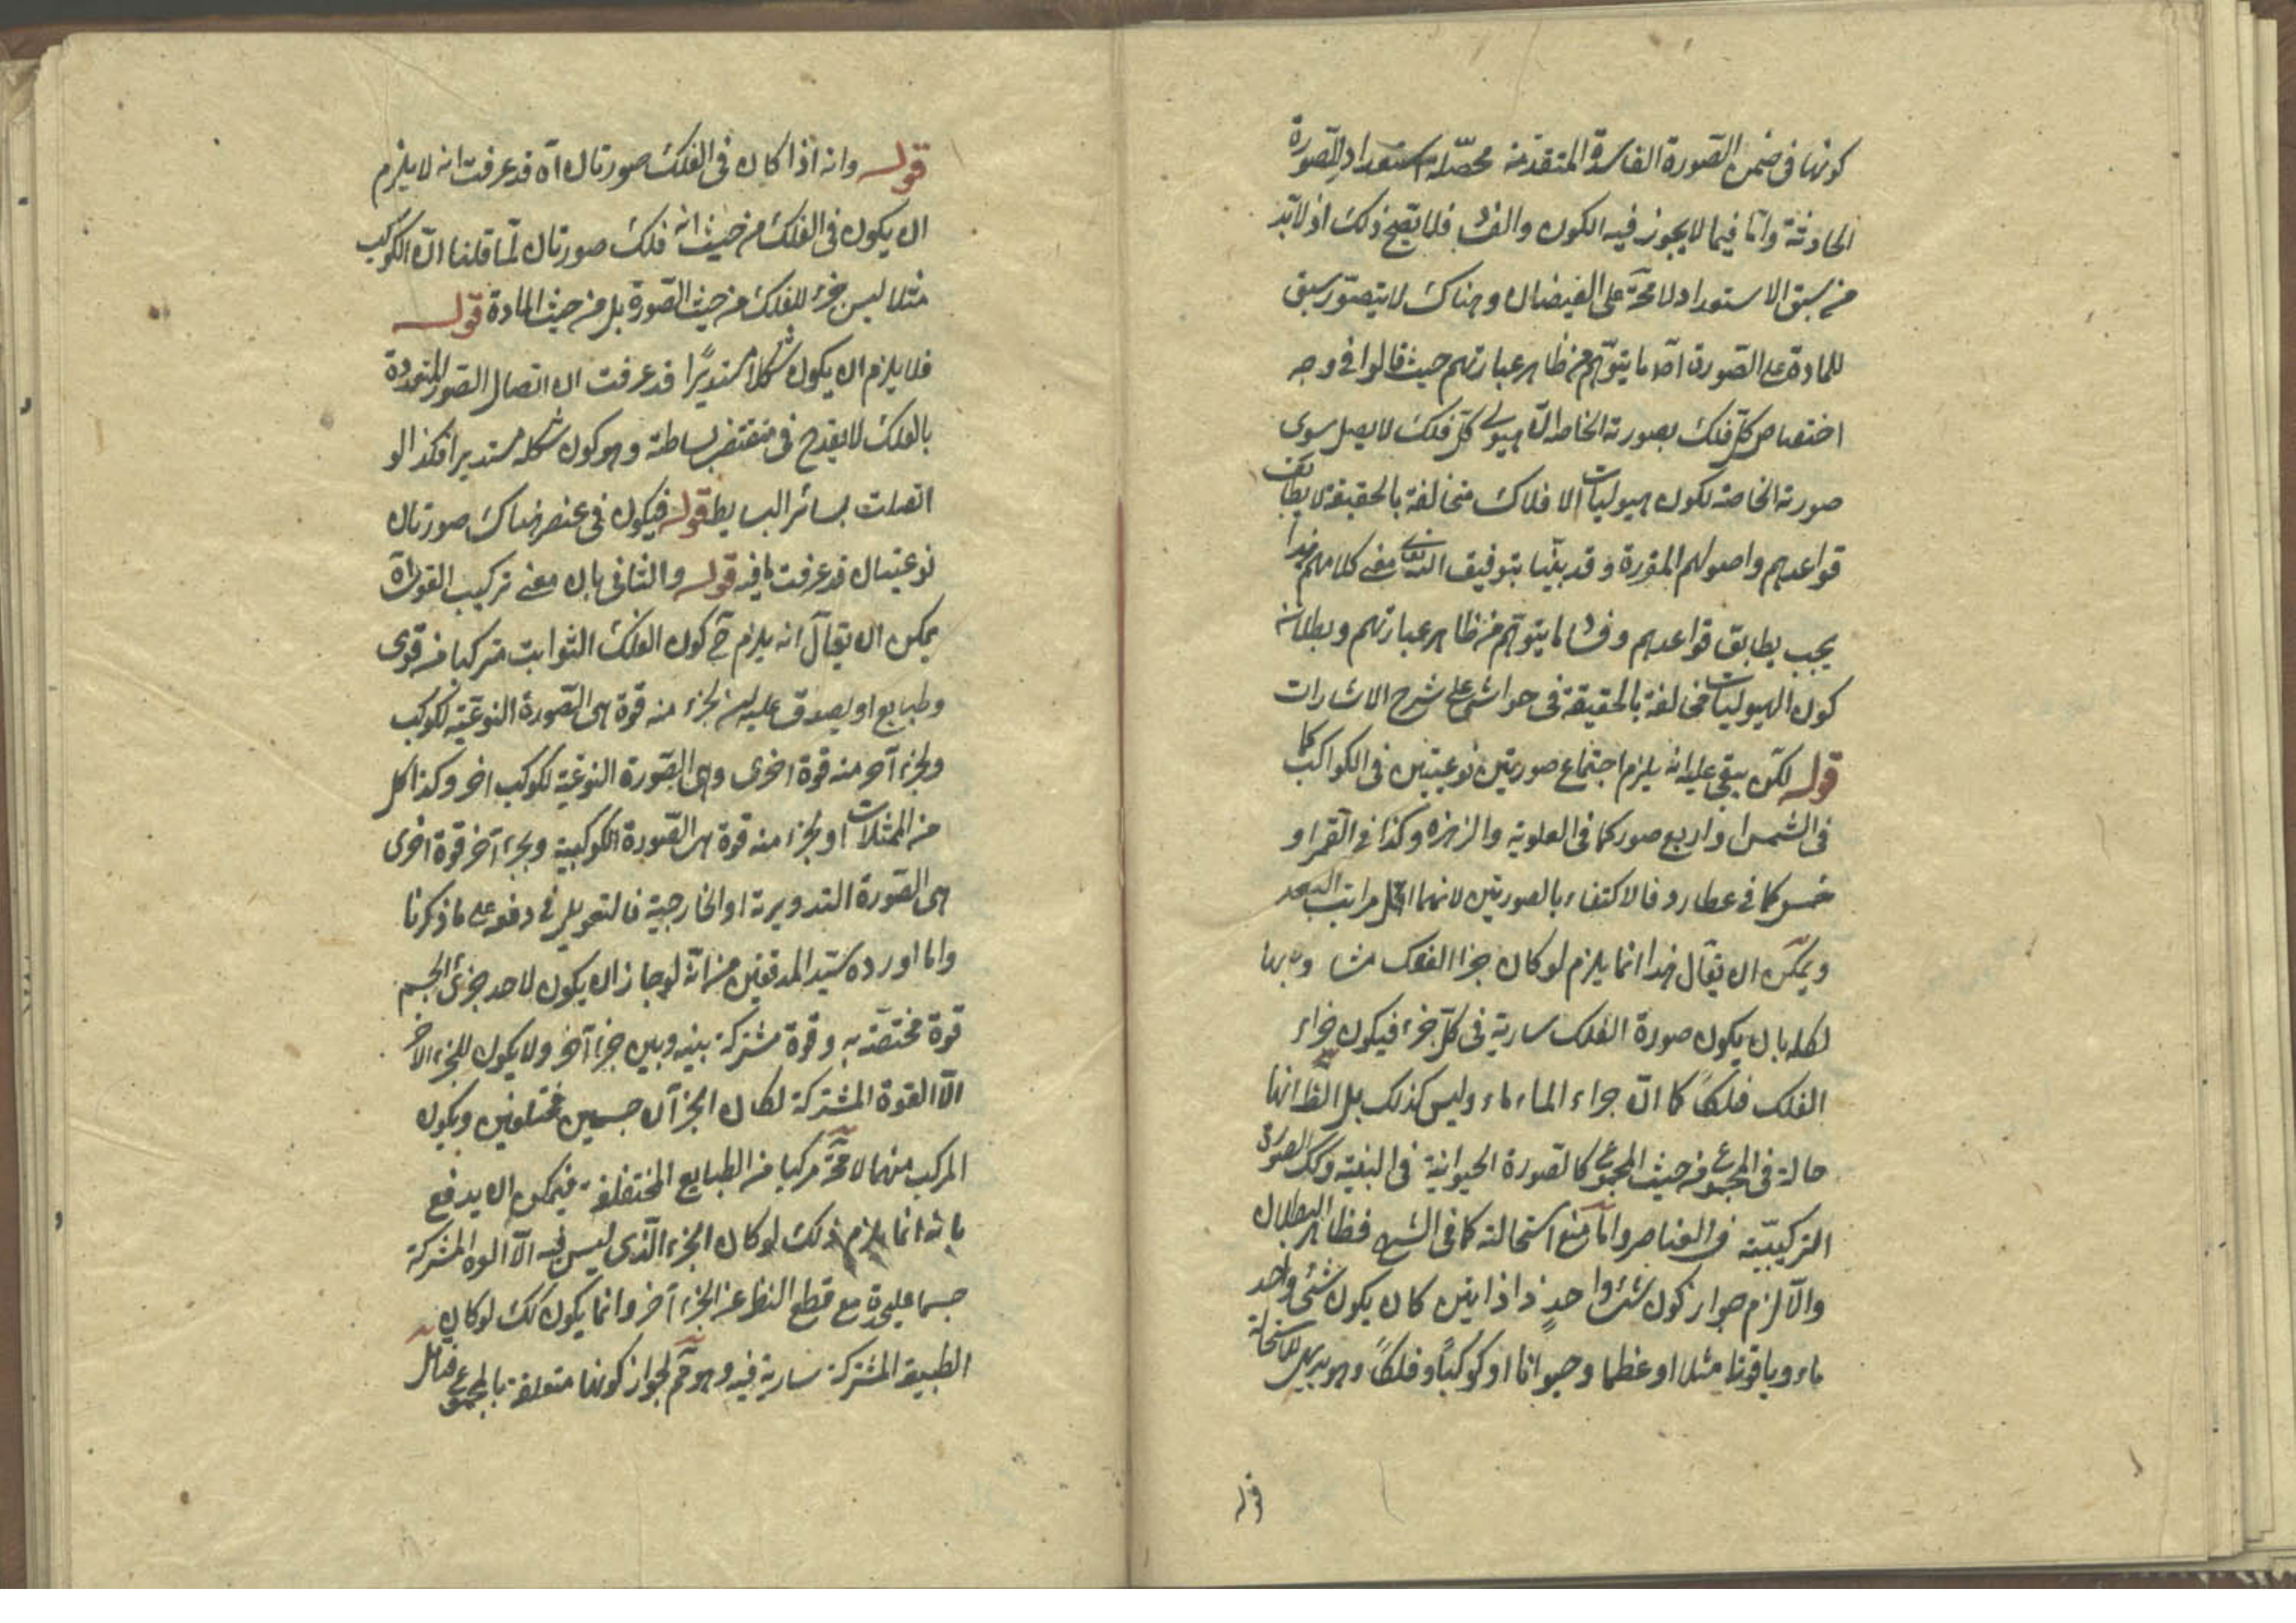 كونها فى ضمن الصورة الفاسدة المتقدمة محصّلة استعداد للصورة
الحادثة وامّا فيما لا يجوز فيه الكون والفسا فلا يصح ذلك اذ لا بد
من سبق الاستعداد لا محة على الفيضان وهناك لا يتصوّر سبق
للمادة على الصورة امّا ما يتوهم من ظاهر عبارتهم حيث قالوا فى وجه
اختصاص كلّ فلك بصورته الخاصة انّ هيولى كلّ فلك لا يقبل سوى
صورته الخاصة لكون هيوليات الافلاك متخالفة بالحقيقة لا يطابق
قواعدهم واصولهم المقررة وقد بيّنا بتوفيق الله تعالى معنى كلامهم هذا
يجب يطابق قواعدهم وفسا ما يتوهّم من ظاهر عبارتهم وبطلانه
كون الهيوليات مخالفة بالحقيقة فى حواشى على شرح الاشارات
قوله لكن يبقى عليه انه يلزم اجتماع صورتين نوعيتين فى الكواكب كما
فى الشمس او اربع صور كما فى العلوية والزهره وكذا فى القمر او
خمس كما فى عطارد فالاكتفاء بالصورتين لانهما اقل مراتب
ويمكن ان يقال هذا انما يلزم لو كان جزء الفلك
لكله بان يكون صورة الفلك سارية فى كلّ جزء فيكون جزاء
الفلك فلكاً كما انّ جزاء الماء ماء وليس كذلك بل الظ انها
حالة فى المجموع من حيث المجموع كالصورة الحيوانية فى البنية وكك الصورة
التركيبيّة فى العناصر وامّا منع استحالته كما فى الشرح فظاهر البطلان
والّا لزم جواز كون شئ واحدٍ ذا ذاتين كان يكون شئ واحد
ماء وياقوتا مثلا او عظما وحيوانا او كوكباً وفلكاً وهو بديهى الاستحالة
قوله
قوله وانه اذا كان فى الفلك صورتان اه قد عرفت انه لا يلزم
ان يكون فى الفلك من حيث انه فلك صورتان لمّا قلنا انّ الكوكب
مثلا ليس جزء للفلك من حيث الصورة بل من حيث المادة قوله
فلا يلزم ان يكون شكلا مستديرًا قد عرفت ان اتصال الصور المتعددة
بالفلك لا يقدح فى مقتضى بساطته وهو كون شكله مستديرا فكذا لو
اتصلت بسائر البسايط قوله فيكون فى عنصر هناك صورتان
نوعيتان قد عرفت ما فيه قوله والثانى بان معنى تركيب القوى اه
يمكن ان يقال انه يلزم ح كون الفلك الثوابت مركبا من قوى
وطبايع او يصدق عليه ان لجزء منه قوة هى الصورة النوعيّة لكوكب
ولجزء آخر منه قوة اخرى وهى الصورة النوعيّة لكوكب اخر وكذا كل
من الممثلات او لجزء منه قوة هى الصورة الكوكبية ولجزء آخر قوة اخرى
هى الصورة التدويرية او الخارجية فالتعويل فى دفعه على ما ذكرنا
واما اورده سيّد المدققين من انّه لو جاز ان يكون لاحد جزئى الجسم
قوة مختصّة به وقوة مشتركة بينه وبين جزء آخر ولا يكون للجزء الآخر
الّا القوة المشتركة لكان الجزآن جسمين مختلفين ويكون
المركب منهما لا محة مركبا من الطبايع المختلفة فيمكن ان يدفع
بانه انما يلزم ذلك لو كان الجزء الّذى ليس فيه الّا القوة المشتركة
جسما عليحدة مع قطع النظر عن الجزء آخر وانما يكون كك لو كان
الطبيعة المشتركة سارية فيه وهو مم لجواز كونها متعلقة بالمجموع فتأمل